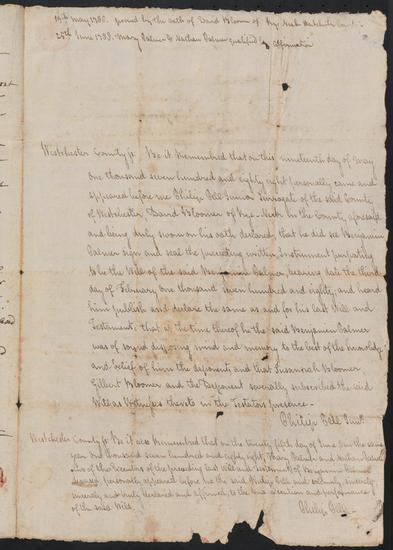 19th May 1788. proved by the oath of David Bloomer of Rye Neck
25th June 1788. Mary Palmer & Nathan Palmer qualified by affirmation
Westchester County ss. Be it Remembred that on this nineteenth day of May
one thousand seven hundred and eighty eight personally came and
appeared before me Philip Pell Junior Surrogate of the said County
of Westchester, David Bloomer of Rye-Neck in the County aforesaid
and being duly sworn on his oath declared that he did see Benjamin
Palmer sign and seal the preceding written Instrument purporting
to be the Will of the said Benjamin Palmer, bearing date the third
day of February one thousand seven hundred and eighty, and heard
him publish and declare the same as and for his last Will and
Testament; that at the time thereof he the said Benjamin Palmer
was of sound disposing mind and memory to the best of the knowledge
and belief of him the deponent; and that Susannah Bloomer
Gilbert Bloomer and the Deponent severally subscribed the said
Will as Witnesses thereto in the Testators presence -
Philip Pell Junr.
Westchester County ss. Be it also Remembred that on the twenty fifth day of June in the same
year one thousand seven hundred and eighty eight, Mary Palmer and Nathan Palmer
of the Executors of the preceding last Will and Testament of Benjamin Palmer
deceased, personally appeared before me the said Philip Pell and solemnly, sincerely
and truly declared and affirmed to the due execution and performance
of the said Will.
Philip Pell